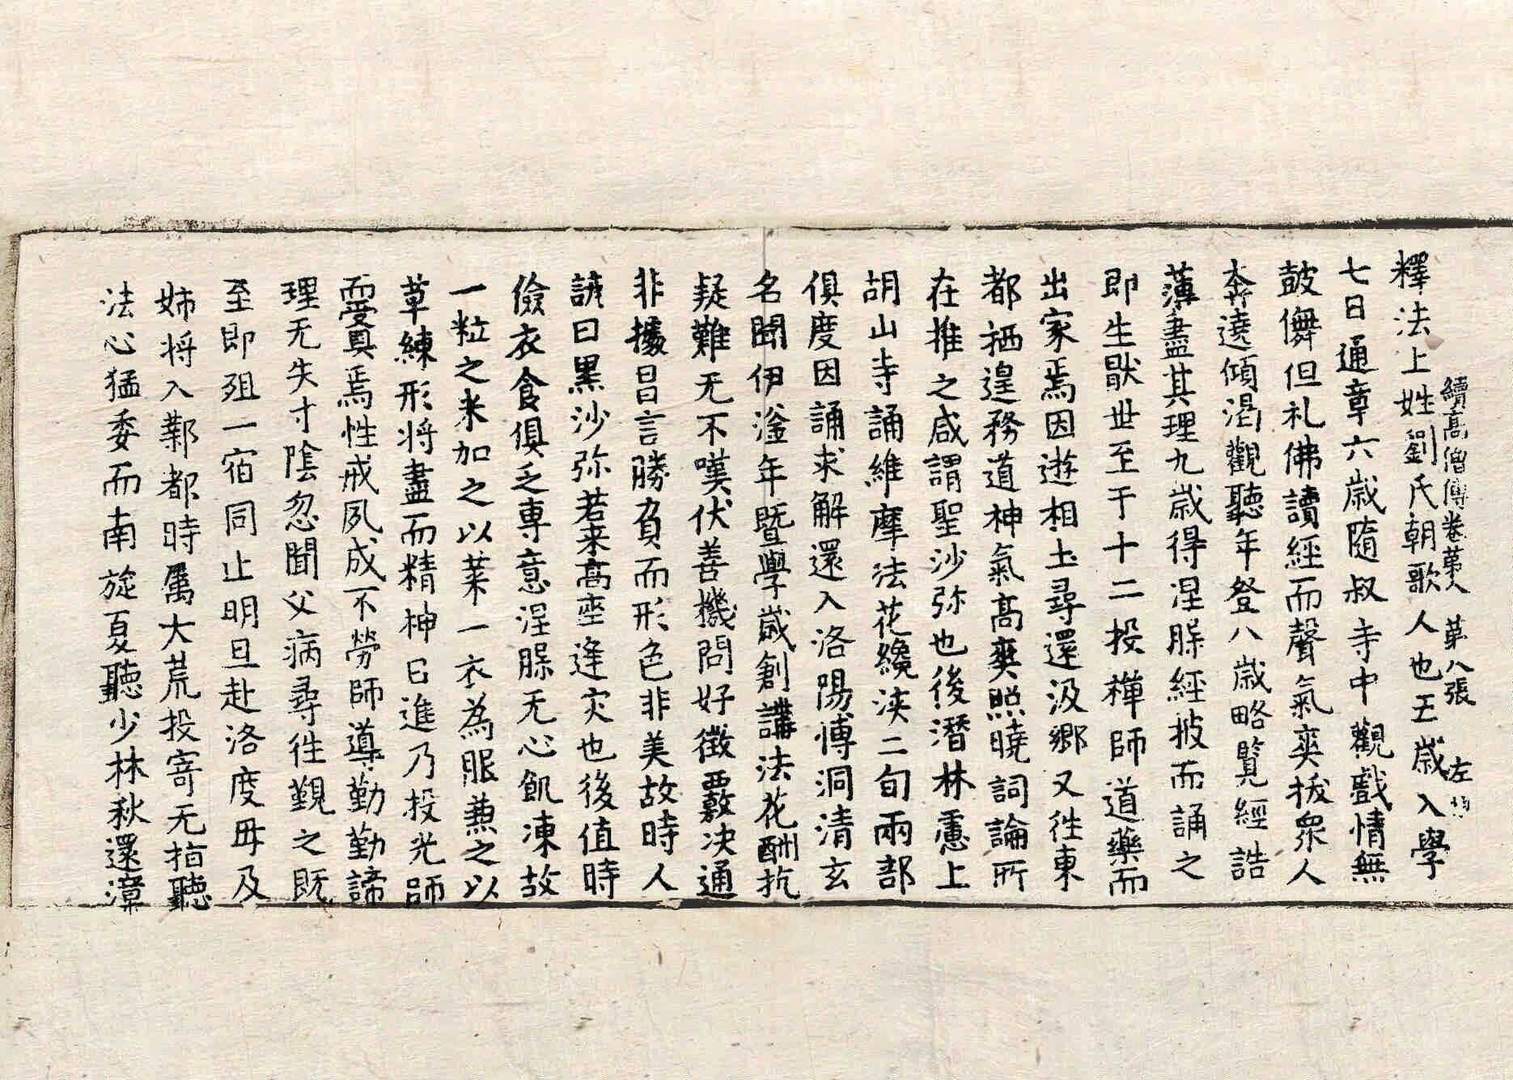 續高僧傳卷苐八 第八張 左
釋法上姓劉氏朝歌人也五歲入學
七日通章六歲隨叔寺中觀戲情無
皷儛但礼佛讀經而聲氣爽拔衆人
奔遶傾渴觀聽年登八歲略覽經誥
薄盡其理九歲得涅槃經披而誦之
即生猒世至于十二投禪師道藥而
出家焉因遊相土尋還汲鄉又徃東
都栖遑務道神氣高爽照曉詞論所
在推之咸謂聖沙弥也後潛林慮上
胡山寺誦維摩法花纔浹二旬兩部
俱度因誦求解還入洛陽博洞清玄
名聞伊滏年暨學歲創講法花酬抗
疑難无不嘆伏善機問好徵覈决通
非據昌言勝負而形色非美故時人
諺曰黒沙弥若来高座逢灾也後值時
儉衣食俱乏専意涅槃无心飢凍故
一粒之米加之以菜一衣為服兼之以
草練形将盡而精神日進乃投光師
而受具焉性戒夙成不勞師導勤勤諦
理无失寸陰忽聞父病尋徃觀之既
至即殂一宿同止明旦赴洛度母及
姉将入鄴都時屬大荒投寄无指聽
法心猛委而南旋夏聽少林秋還漳